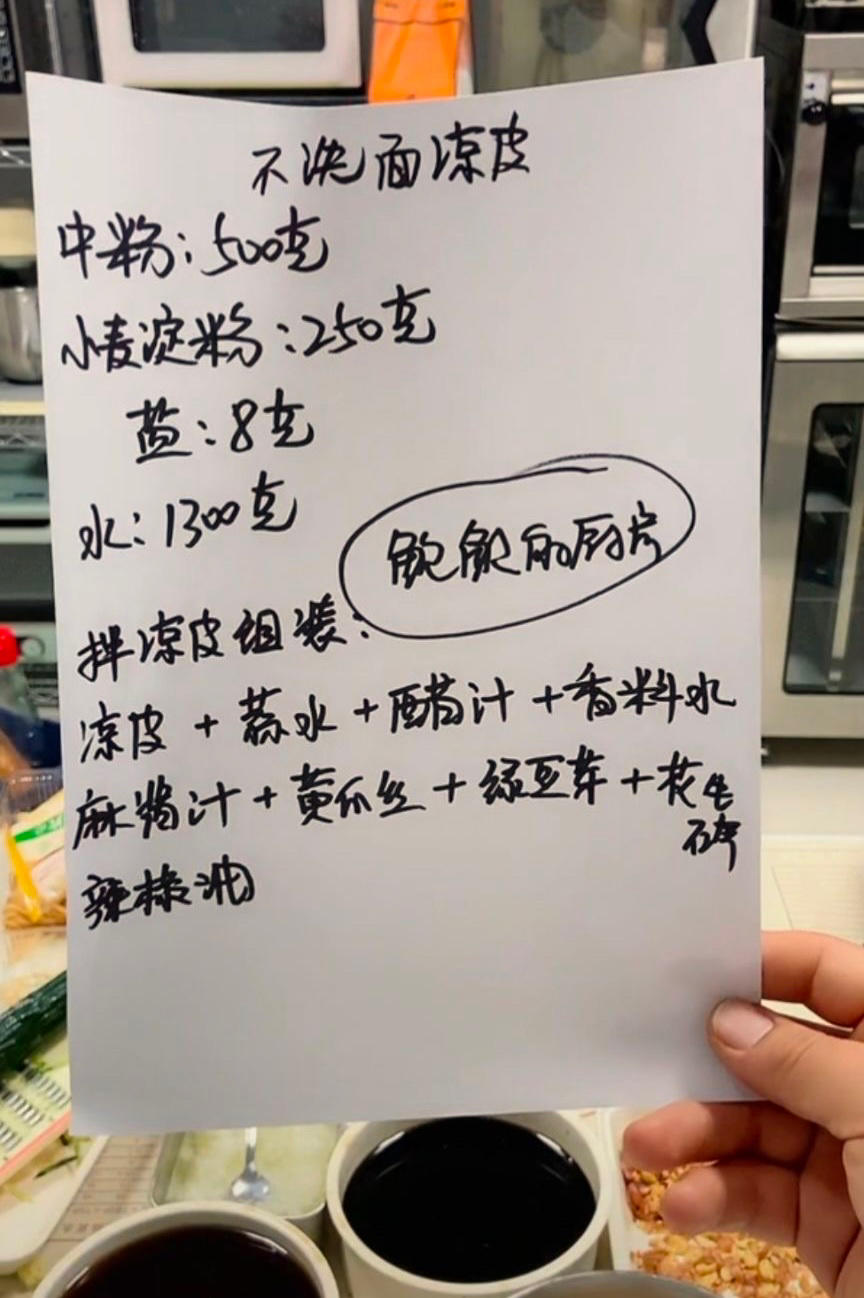 不洗面凉皮
中粉:500克
小麦淀粉:250克
盐:8克
水:1300克
拌凉皮组装:
凉皮+蒜水+醋汁+香料水
麻酱汁+黄瓜丝+绿豆芽+花生
碎
辣椒油